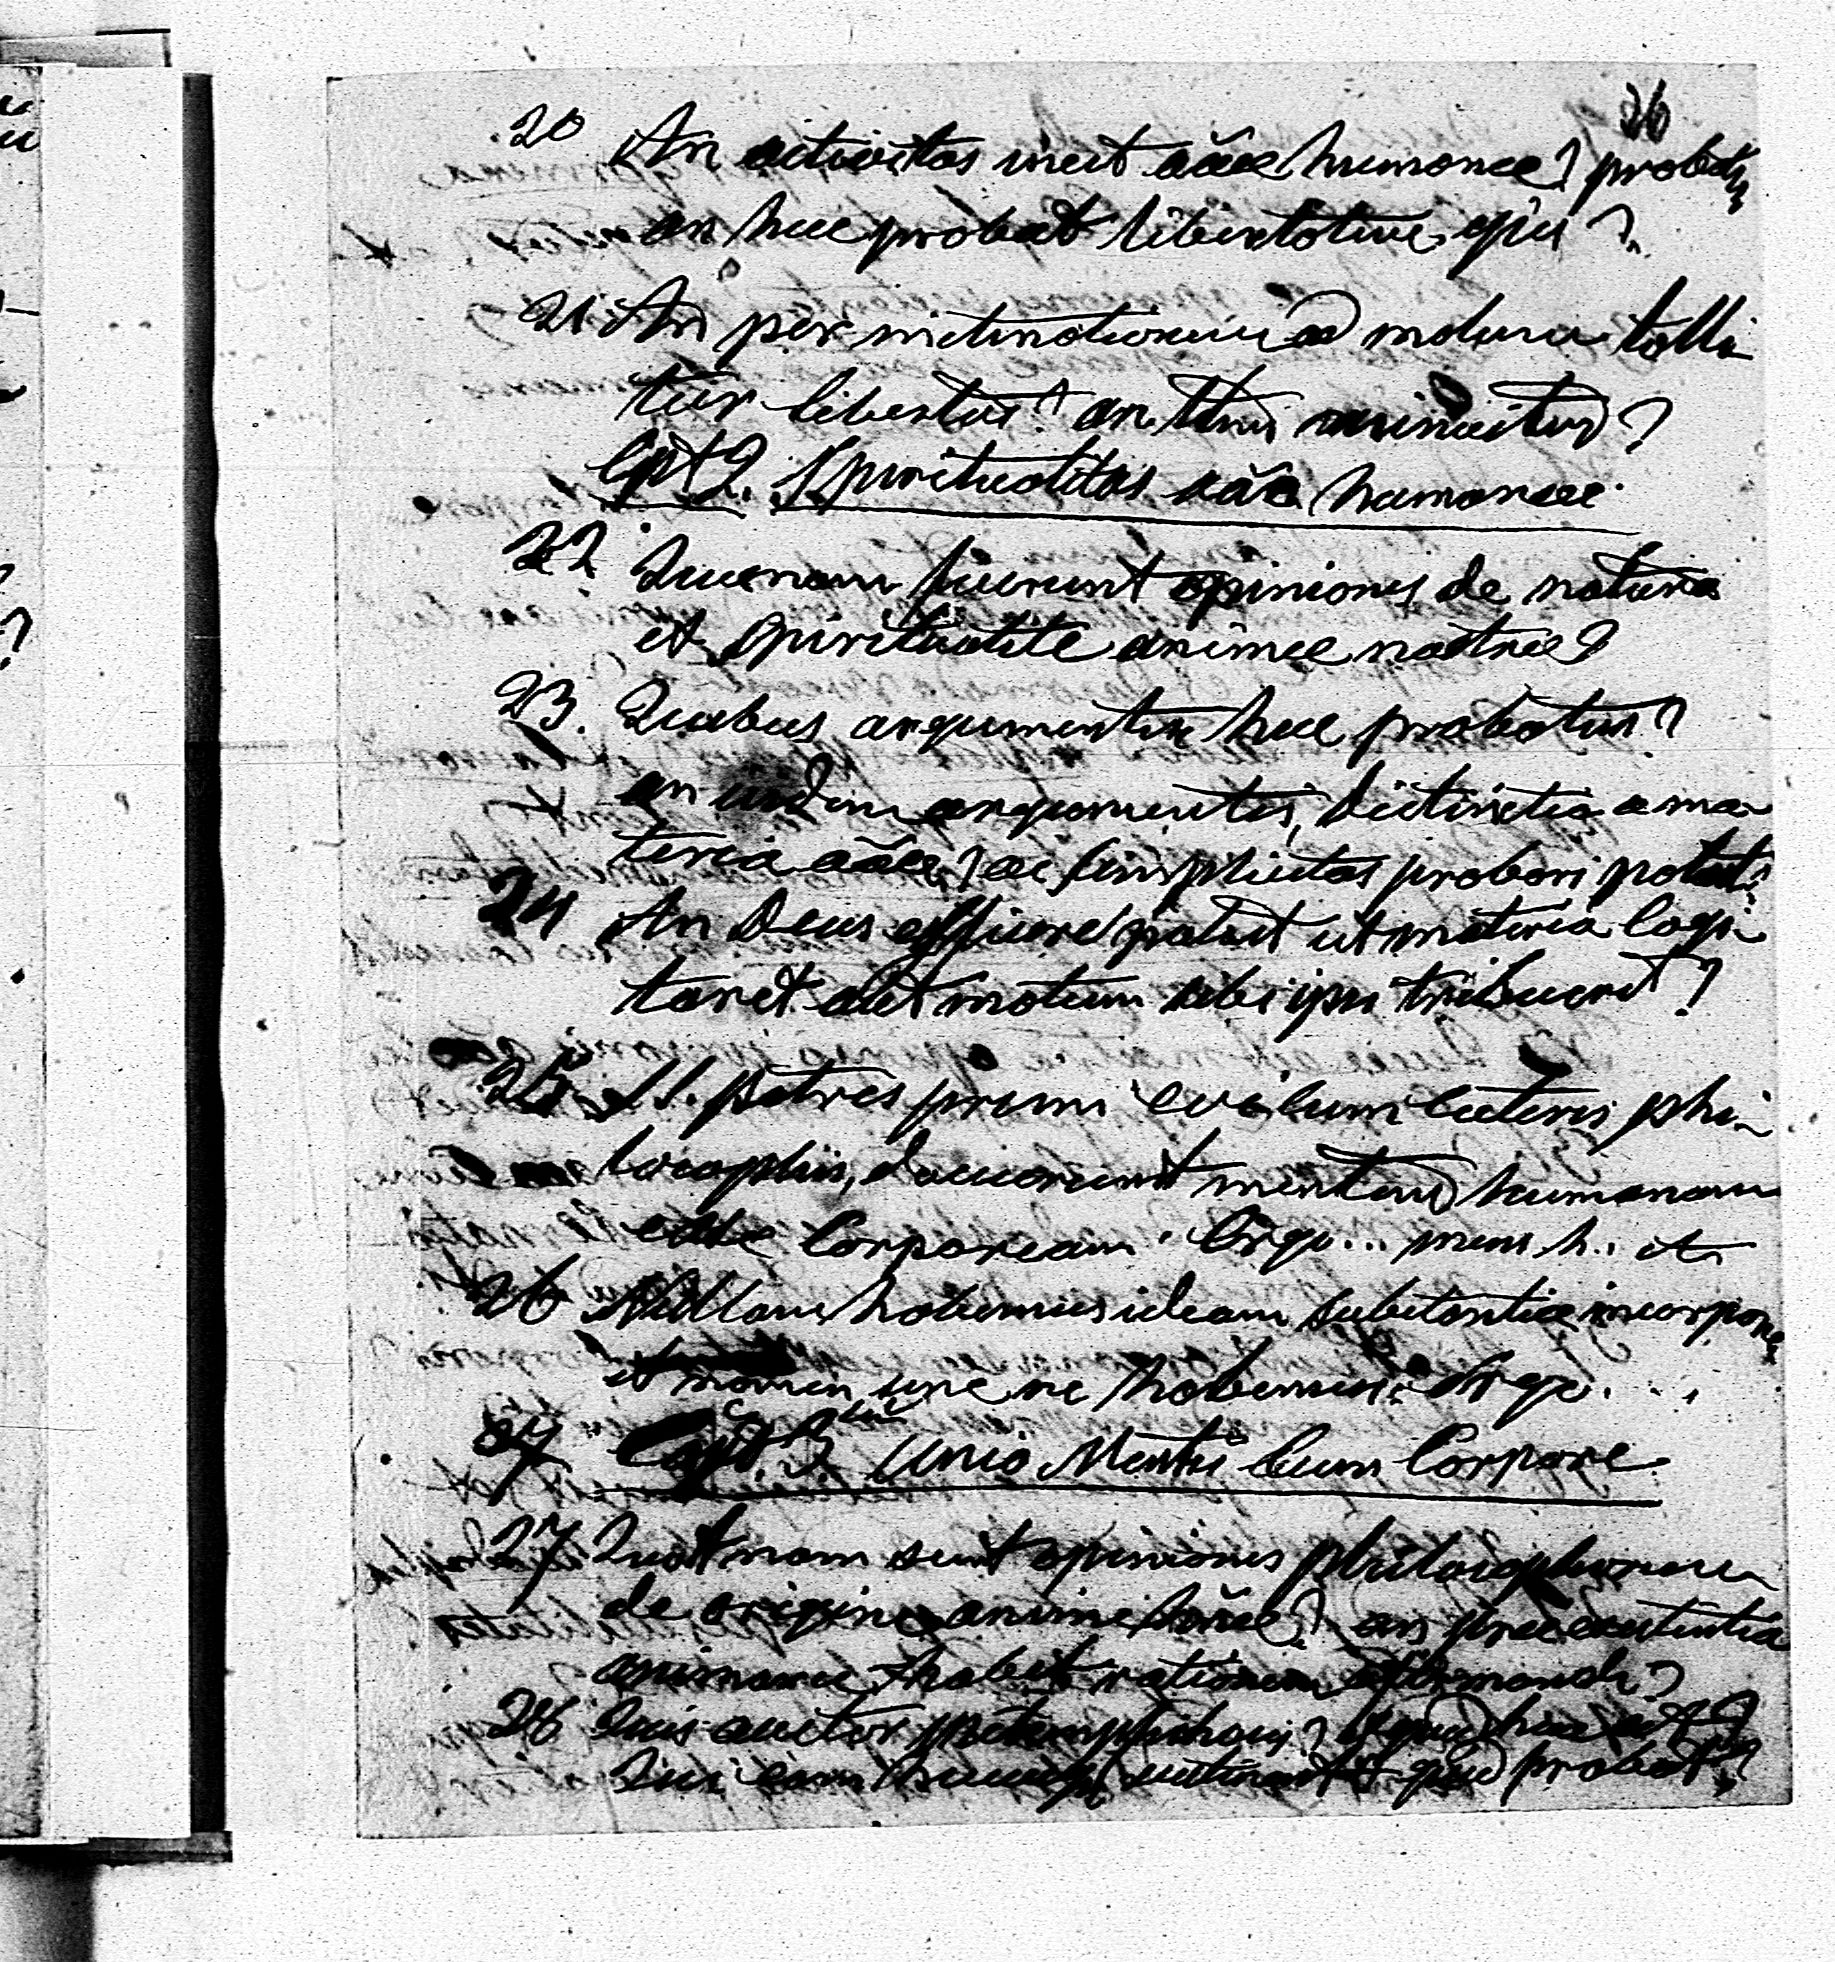 26
20 An activitas inest aãe humanae? probatur
an haec probat libertatem ejus?
21 An per inclinationem ad malum tolli
tur libertas? an tm minuitur?
Cpt 2. Spiritualitas aãe humanae.
22 Quaenam fuerunt opiniones de natura
et spiritualite animae nostrae?
23. Quibus argumentis haec probatur?
an iisdem argumentis, distinctio a ma
teria aãe, ac simplicitas probari potest?
24 An Deus efficere potest ut materia cogi
taret aut motum sibi ipsi tribueret?
25 SS. patres primi cum ceteris phi
losophis, docuerunt mentem humanam
esse corpoream. Ergo... mens h.. et
26 Nullam habemus ideam substantiae incorporeae
et nomen habemus. Ergo. . .
27 Capt. 3 Unio Mentis cum Corpore.
27 Quotnam sunt opiniones philosophorum
de origine animae hãe? an praeexistentia
animarum habet rationem affirmandi?
28 Quis auctor metempsychosis? quid haec est?
Qui eam sustinent et quid probat?